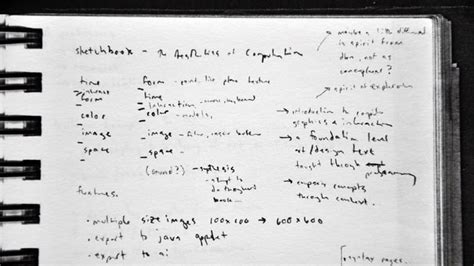 sketchbook - The Aesthetics of Computation
maybe a little different
in spirit from
dbn, not as
conceptual?
spirit of exploration
time form - point line plane texture
form time
interaction - mouse, keyboard
color color - models
image image - filter,
space space
(sound?) - synthesis
→ introduction to
graphics & interaction
→ a foundation level
art/design text
taught through
programming
→ emphasis concepts
through context.
features
• multiple size images 100x100 → 600x600
• export to java applet
• export to ai